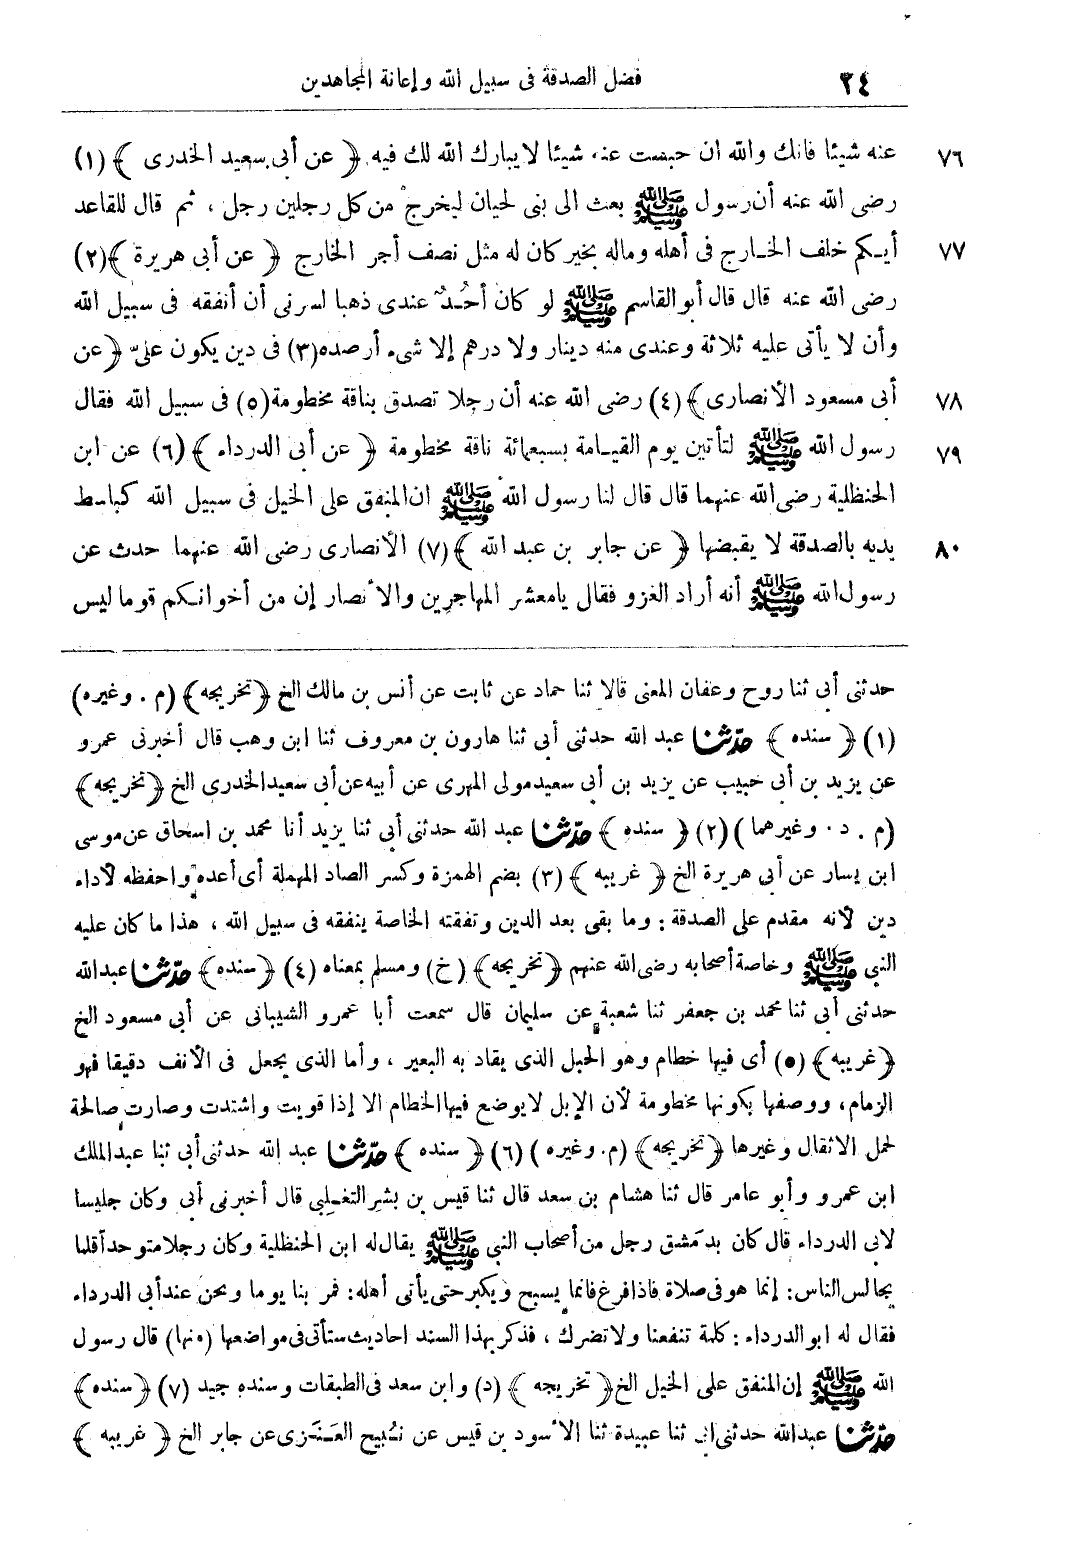 ٢٤ فضل الصدقة فى سبيل الله وإعانة المجاهدين
٧٦ عنه شيئا فانك والله ان حبست عنه شيئا لا يبارك الله لك فيه ﴿ عن أبى سعيد الخدرى ﴾ (١)
رضى الله عنه أن رسول ﷺ بعث الى بنى لحيان ليخرج من كل رجلين رجل ، ثم قال للقاعد
٧٧ أيكم خلف الخارج فى أهله وماله بخير كان له مثل نصف أجر الخارج ﴿ عن أبى هريرة ﴾(٢)
رضى الله عنه قال قال أبو القاسم ﷺ لو كان أُحُدٌ عندى ذهبا لسرنى أن أنفقه فى سبيل الله
وأن لا يأتى عليه ثلاثة وعندى منه دينار ولا درهم إلا شىء أرصده(٣) فى دين يكون علىّ ﴿عن
٧٨ أبى مسعود الأنصارى﴾(٤) رضى الله عنه أن رجلا تصدق بناقة مخطومة(٥) فى سبيل الله فقال
٧٩ رسول الله ﷺ لتأتين يوم القيامة بسبعمائة ناقة مخطومة ﴿ عن أبى الدرداء ﴾(٦) عن ابن
الحنظلية رضى الله عنهما قال قال لنا رسول الله ﷺ ان المنفق على الخيل فى سبيل الله كباسط
٨٠ يديه بالصدقة لا يقبضها ﴿ عن جابر بن عبد الله ﴾(٧) الأنصارى رضى الله عنهما حدث عن
رسول الله ﷺ أنه أراد الغزو فقال يامعشر المهاجرين والأنصار إن من أخوانكم قوما ليس
حدثنى أبى ثنا روح وعفان المعنى قالا ثنا حماد عن ثابت عن أنس بن مالك الخ ﴿تخريجه﴾ (م . وغيره)
(١) ﴿ سنده ﴾ حدّثنا عبد الله حدثنى أبى ثنا هارون بن معروف ثنا ابن وهب قال أخبرنى عمرو
عن يزيد بن أبى حبيب عن يزيد بن أبى سعيد مولى المهرى عن أبيه عن أبى سعيد الخدرى الخ ﴿تخريجه﴾
(م . د . وغيرهما )(٢) ﴿ سنده ﴾ حدّثنا عبد الله حدثنى أبى ثنا يزيد أنا محمد بن اسحاق عن موسى
ابن يسار عن أبى هريرة الخ ﴿ غريبه ﴾ (٣) بضم الهمزة وكسر الصاد المهملة أى أعده واحفظه لأداء
دين لأنه مقدم على الصدقة : وما بقى بعد الدين ونفقته الخاصة ينفقه فى سبيل الله ، هذا ما كان عليه
النبي ﷺ وخاصة أصحابه رضى الله عنهم ﴿تخريجه﴾ (خ) ومسلم بمعناه (٤) ﴿سنده﴾ حدّثنا عبدالله
حدثنى أبى ثنا محمد بن جعفر ثنا شعبة عن سليمان قال سمعت أبا عمرو الشيبانى عن أبى مسعود الخ
﴿غريبه﴾ (٥) أى فيها خطام وهو الحبل الذى يقاد به البعير ، وأما الذى يجعل فى الأنف دقيقا فهو
الزمام، ووصفها بكونها مخطومة لأن الإبل لا يوضع فيها الخطام الا إذا قويت واشتدت وصارت صالحة
لحمل الاثقال وغيرها ﴿تخريجه﴾ (م. وغيره )(٦) ﴿ سنده ﴾ حدّثنا عبد الله حدثنى أبى ثنا عبدالملك
ابن عمرو وأبو عامر قال ثنا هشام بن سعد قال ثنا قيس بن بشر التغلبى قال أخبرنى أبى وكان جليسا
لابى الدرداء قال كان بدمشق رجل من أصحاب النبي ﷺ يقال له ابن الحنظلية وكان رجلا متوحدا قلما
يجالس الناس: إنما هو فى صلاة فاذا فرغ فانما يسبح ويكبر حتى يأتى أهله: فمر بنا يوما ونحن عند أبى الدرداء
فقال له ابو الدرداء : كلمة تنفعنا ولا تضرك ، فذكر بهذا السند احاديث ستأتى فى مواضعها (منها) قال رسول
الله ﷺ إن المنفق على الخيل الخ﴿ تخريجه ﴾ (د) وابن سعد فى الطبقات وسنده جيد (٧) ﴿سنده﴾
حدّثنا عبدالله حدثنى ابى ثنا عبيدة ثنا الأسود بن قيس عن نُبيح العَنَزى عن جابر الخ ﴿ غريبه ﴾